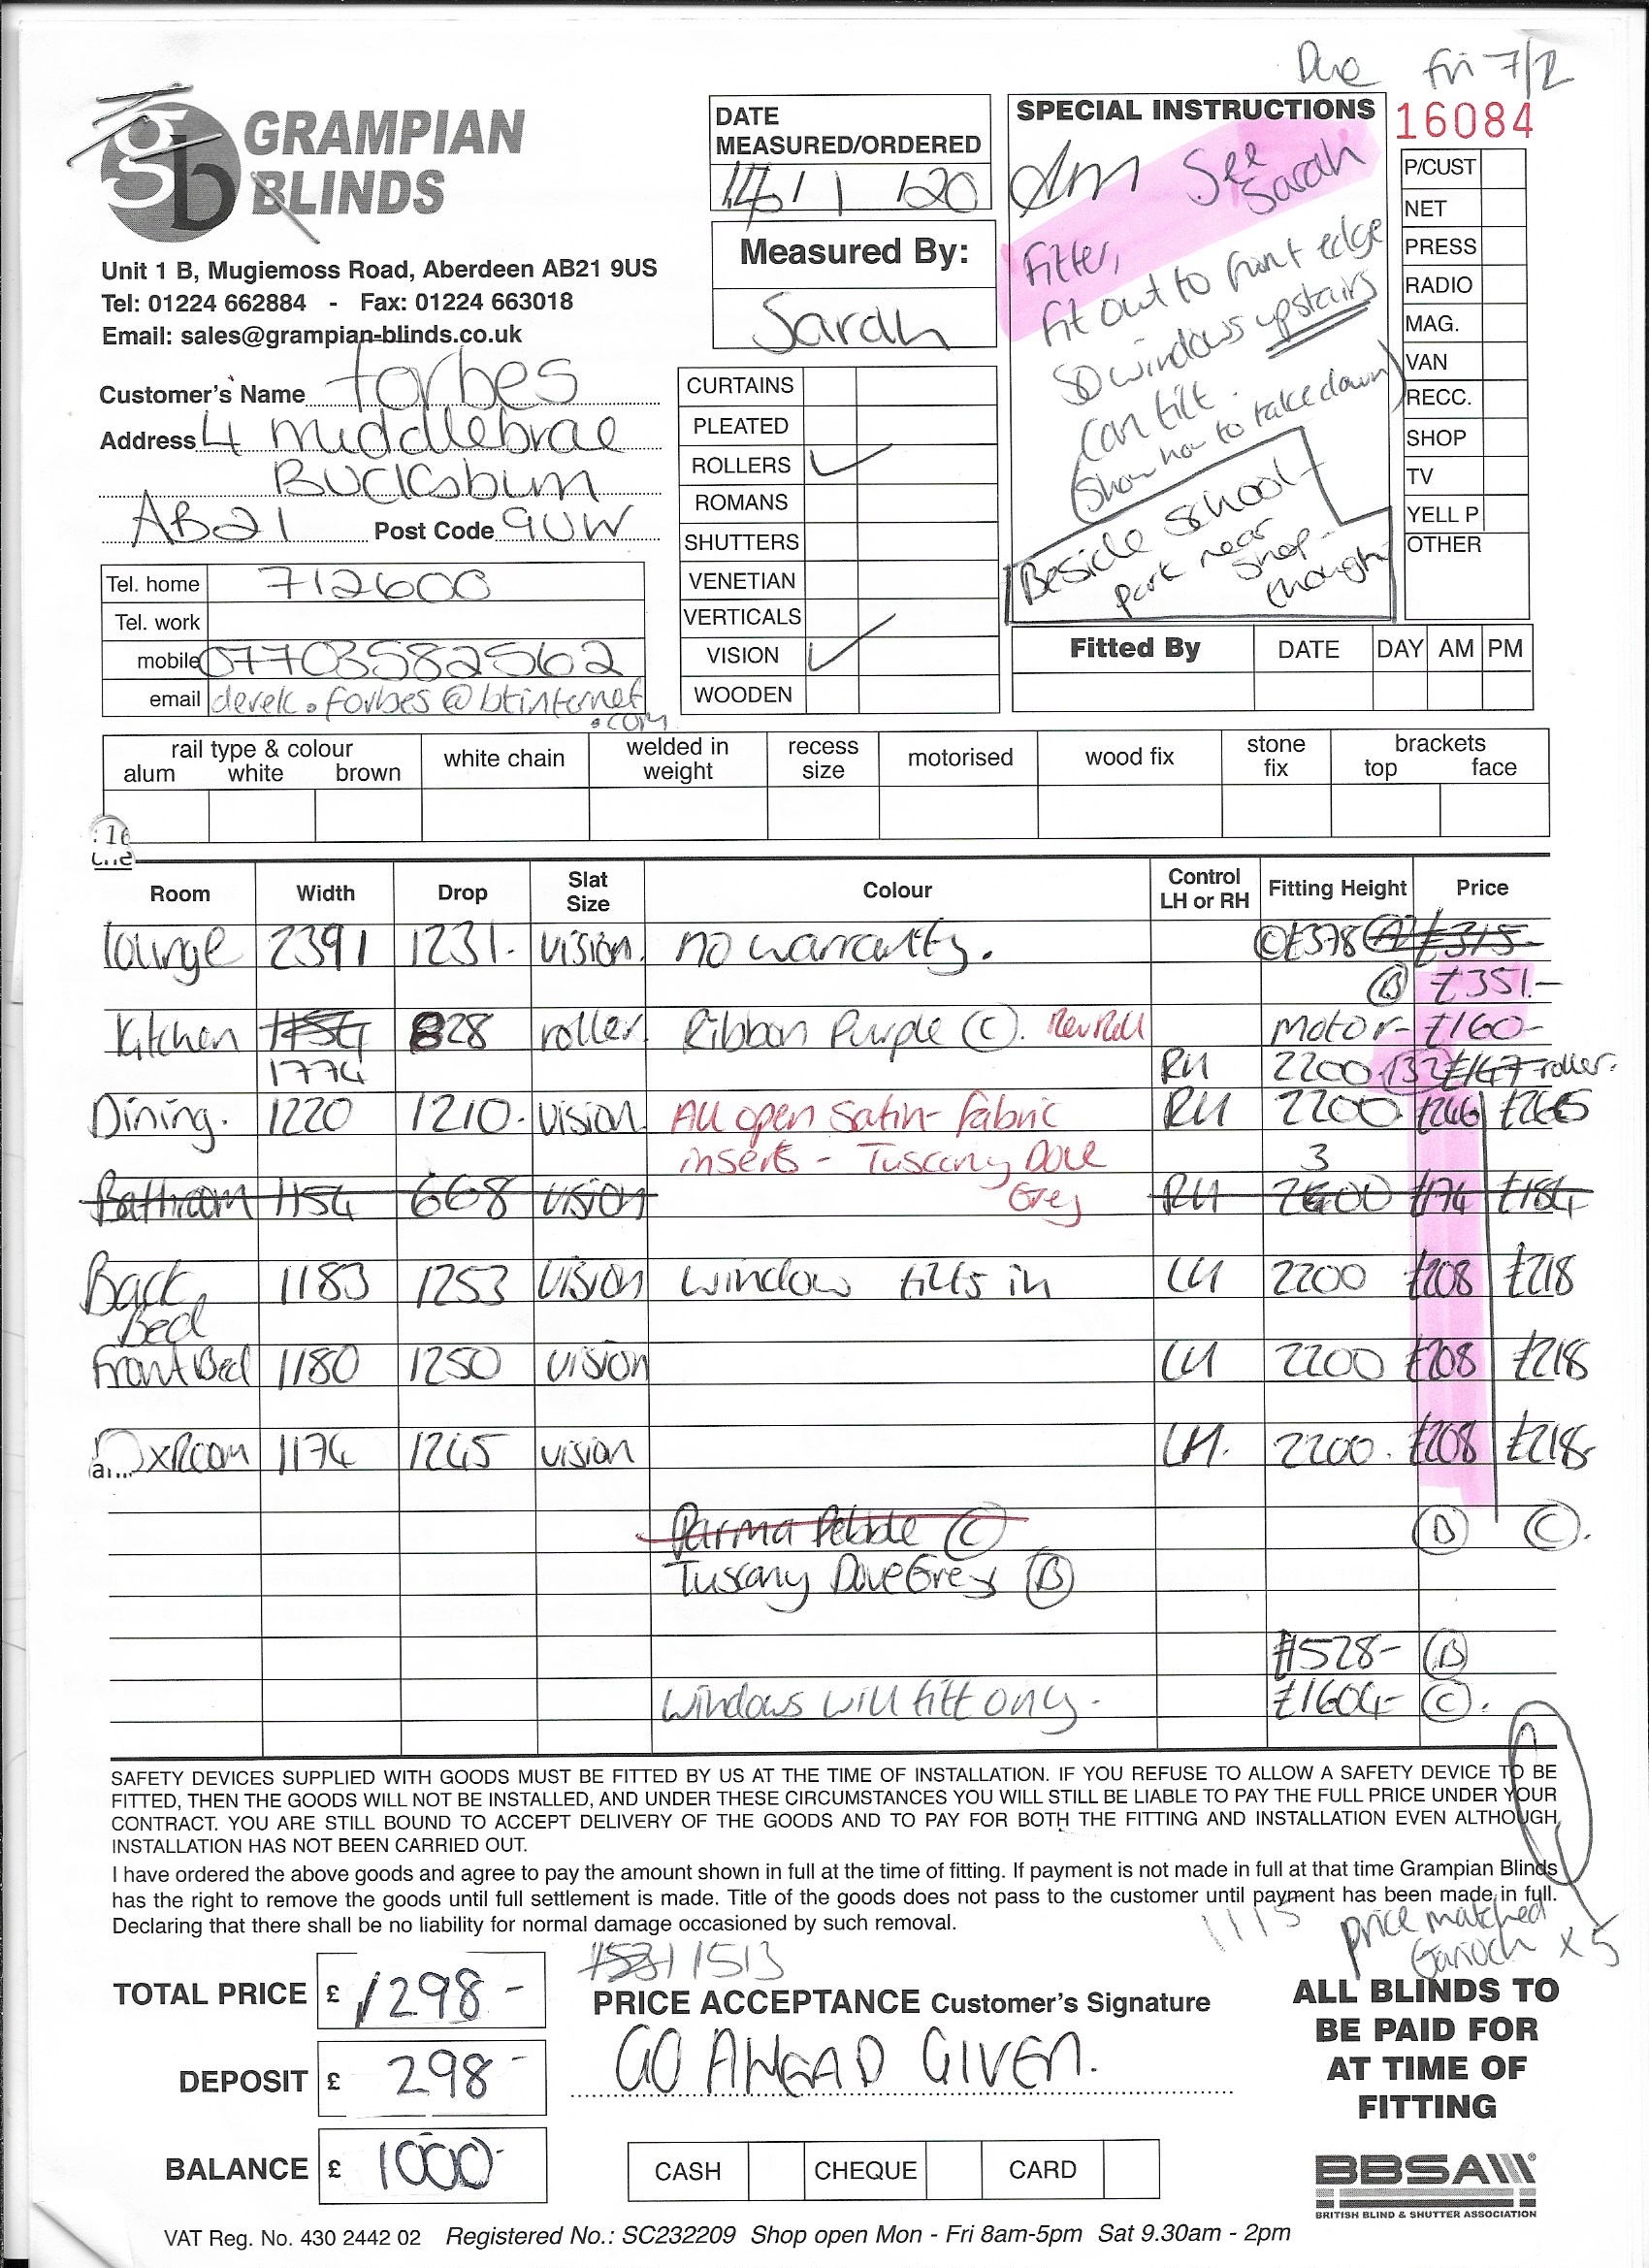 Due Fri 7/2
gb GRAMPIAN BLINDS
Unit 1 B, Mugiemoss Road, Aberdeen AB21 9US
Tel: 01224 662884 - Fax: 01224 663018
Email: sales@grampian-blinds.co.uk
Customer's Name Forbes
Address 4 Middlebrae
Bucksburn
AB21 Post Code 9UW
Tel. home 712600
Tel. work
mobile 07703582562
email derek.forbes@btinternet
.com
DATE
MEASURED/ORDERED
14/1/20
Measured By:
Sarah
CURTAINS
PLEATED
ROLLERS ✓
ROMANS
SHUTTERS
VENETIAN
VERTICALS
VISION ✓
WOODEN
SPECIAL INSTRUCTIONS
Am See
Sarah
Fitter,
fit out to front edge
so windows upstairs
can tilt.
(Show how to take down)
Beside school -
park near
shop -
though
16084
P/CUST
NET
PRESS
RADIO
MAG.
VAN
RECC.
SHOP
TV
YELL P
OTHER
Fitted By DATE DAY AM PM
rail type & colour white chain welded in weight recess size motorised wood fix stone fix brackets
alum white brown top face
Room Width Drop Slat Size Colour Control LH or RH Fitting Height Price
Lounge 2391 1231. vision. no warranty. (C) £378 (A) £315-
(B) £351.-
Kitchen 1154 828 roller. Ribbon Purple (C). Rev Roll motor- £160-
1774 RH 2200 132 £147 roller.
Dining. 1220 1210. vision. All open Satin - fabric RH 2200 £246 £265
inserts - Tuscany Dove 3
Grey
Bathroom 1154 668 vision RH 2400 £174 £184
Back 1183 1253 vision window tilts in LH 2200 £208 £218
Bed
Front Bed 1180 1250 vision LH 2200 £208 £218
Box Room 1174 1245 vision LH. 2200. £208 £218
Parma Pebble (C) (B) (C).
Tuscany Dove Grey (B)
£1528- (B)
Windows will tilt only. £1604- (C).
SAFETY DEVICES SUPPLIED WITH GOODS MUST BE FITTED BY US AT THE TIME OF INSTALLATION. IF YOU REFUSE TO ALLOW A SAFETY DEVICE TO BE
FITTED, THEN THE GOODS WILL NOT BE INSTALLED, AND UNDER THESE CIRCUMSTANCES YOU WILL STILL BE LIABLE TO PAY THE FULL PRICE UNDER YOUR
CONTRACT. YOU ARE STILL BOUND TO ACCEPT DELIVERY OF THE GOODS AND TO PAY FOR BOTH THE FITTING AND INSTALLATION EVEN ALTHOUGH
INSTALLATION HAS NOT BEEN CARRIED OUT.
I have ordered the above goods and agree to pay the amount shown in full at the time of fitting. If payment is not made in full at that time Grampian Blinds
has the right to remove the goods until full settlement is made. Title of the goods does not pass to the customer until payment has been made in full.
Declaring that there shall be no liability for normal damage occasioned by such removal.
1113 price matched
Garioch x 5
1513
TOTAL PRICE £ 1298-
PRICE ACCEPTANCE Customer's Signature
GO AHEAD GIVEN.
DEPOSIT £ 298-
BALANCE £ 1000-
CASH CHEQUE CARD
ALL BLINDS TO
BE PAID FOR
AT TIME OF
FITTING
BBSA
BRITISH BLIND & SHUTTER ASSOCIATION
VAT Reg. No. 430 2442 02 Registered No.: SC232209 Shop open Mon - Fri 8am-5pm Sat 9.30am - 2pm